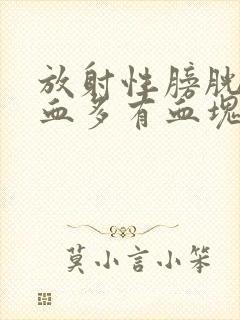 放射性膀胱
血多有血塊
莫小言小笨